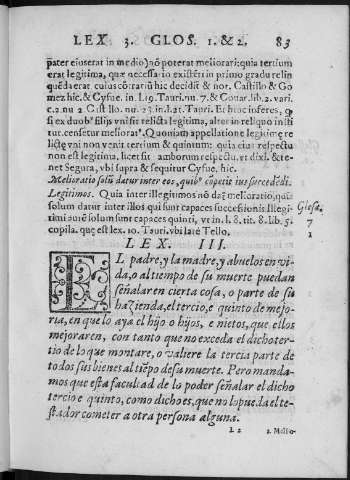 LEX 3. GLOS. 1. & 2. 83
pater eius erat in medio) nõ poterat meliorari: quia tertium
erat legitima, quæ necessario existẽti in primo gradu relin
quẽda erat cuius cõtrariũ hic decidit & nor. Castillo & Go
mez hic. & Cyfue. in l. 19. Tauri. nu. 7. & Couar. lib. 2. vari.
c. 2. nu 2 Castillo. nu. 23. in l. 21. Tauri. Et hoc inferes, q
si ex duobꝰ filijs vni sit relicta legitima, alter in reliquo insti
tur. censetur melioratꝰ. Quoniam appellatione legitimę re
lictę vni non venit tertium & quintum: quia eius respectu
non est legitima, licet sit amborum respectu. vt dixi. & te-
net Segura, vbi supra & sequitur Cyfue. hic.
Melioratio solũ datur inter eos, quibꝰ cõpetit ius succedẽdi.
Legitimos. Quia inter illegitimos nõ daƒ melioratio, quia
solum datur inter illos qui sunt capaces successionis Illegi-
timi aũt solum sunt capaces quinti, vt in l. 8. tit. 8. lib. 5.
copila. quę est lex. 10. Tauri. vbi latè Tello.
Glosa.
7
1
LEX. III.
EL padre, y la madre, y abuelos en vi
da, o al tiempo de su muerte puedan
señalar en cierta cosa, o parte de su
hazienda, el tercio, e quinto de mejo-
ria, en que lo aya el hijo o hijos, e nietos, que ellos
mejoraren, con tanto que no exceda el dicho ter-
tio de lo que montare, o valiere la tercia parte de
todos sus bienes al tiẽpo de su muerte. Pero manda-
mos que esta facultad de lo poder señalar el dicho
tercio e quinto, como dicho es, que no lo pueda el te-
stador cometer a otra persona alguna.
L 2 2. Melio-